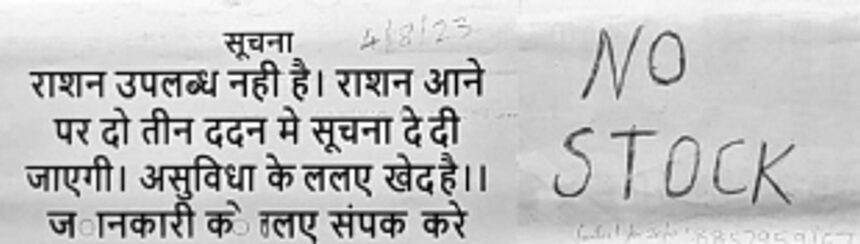 सूचना 4/8/23
राशन उपलब्ध नही है। राशन आने
पर दो तीन ददन मे सूचना दे दी
जाएगी। असुविधा के ललए खेद है।।
ज◌ानकारी क◌े लिए संपक करे
NO
STOCK